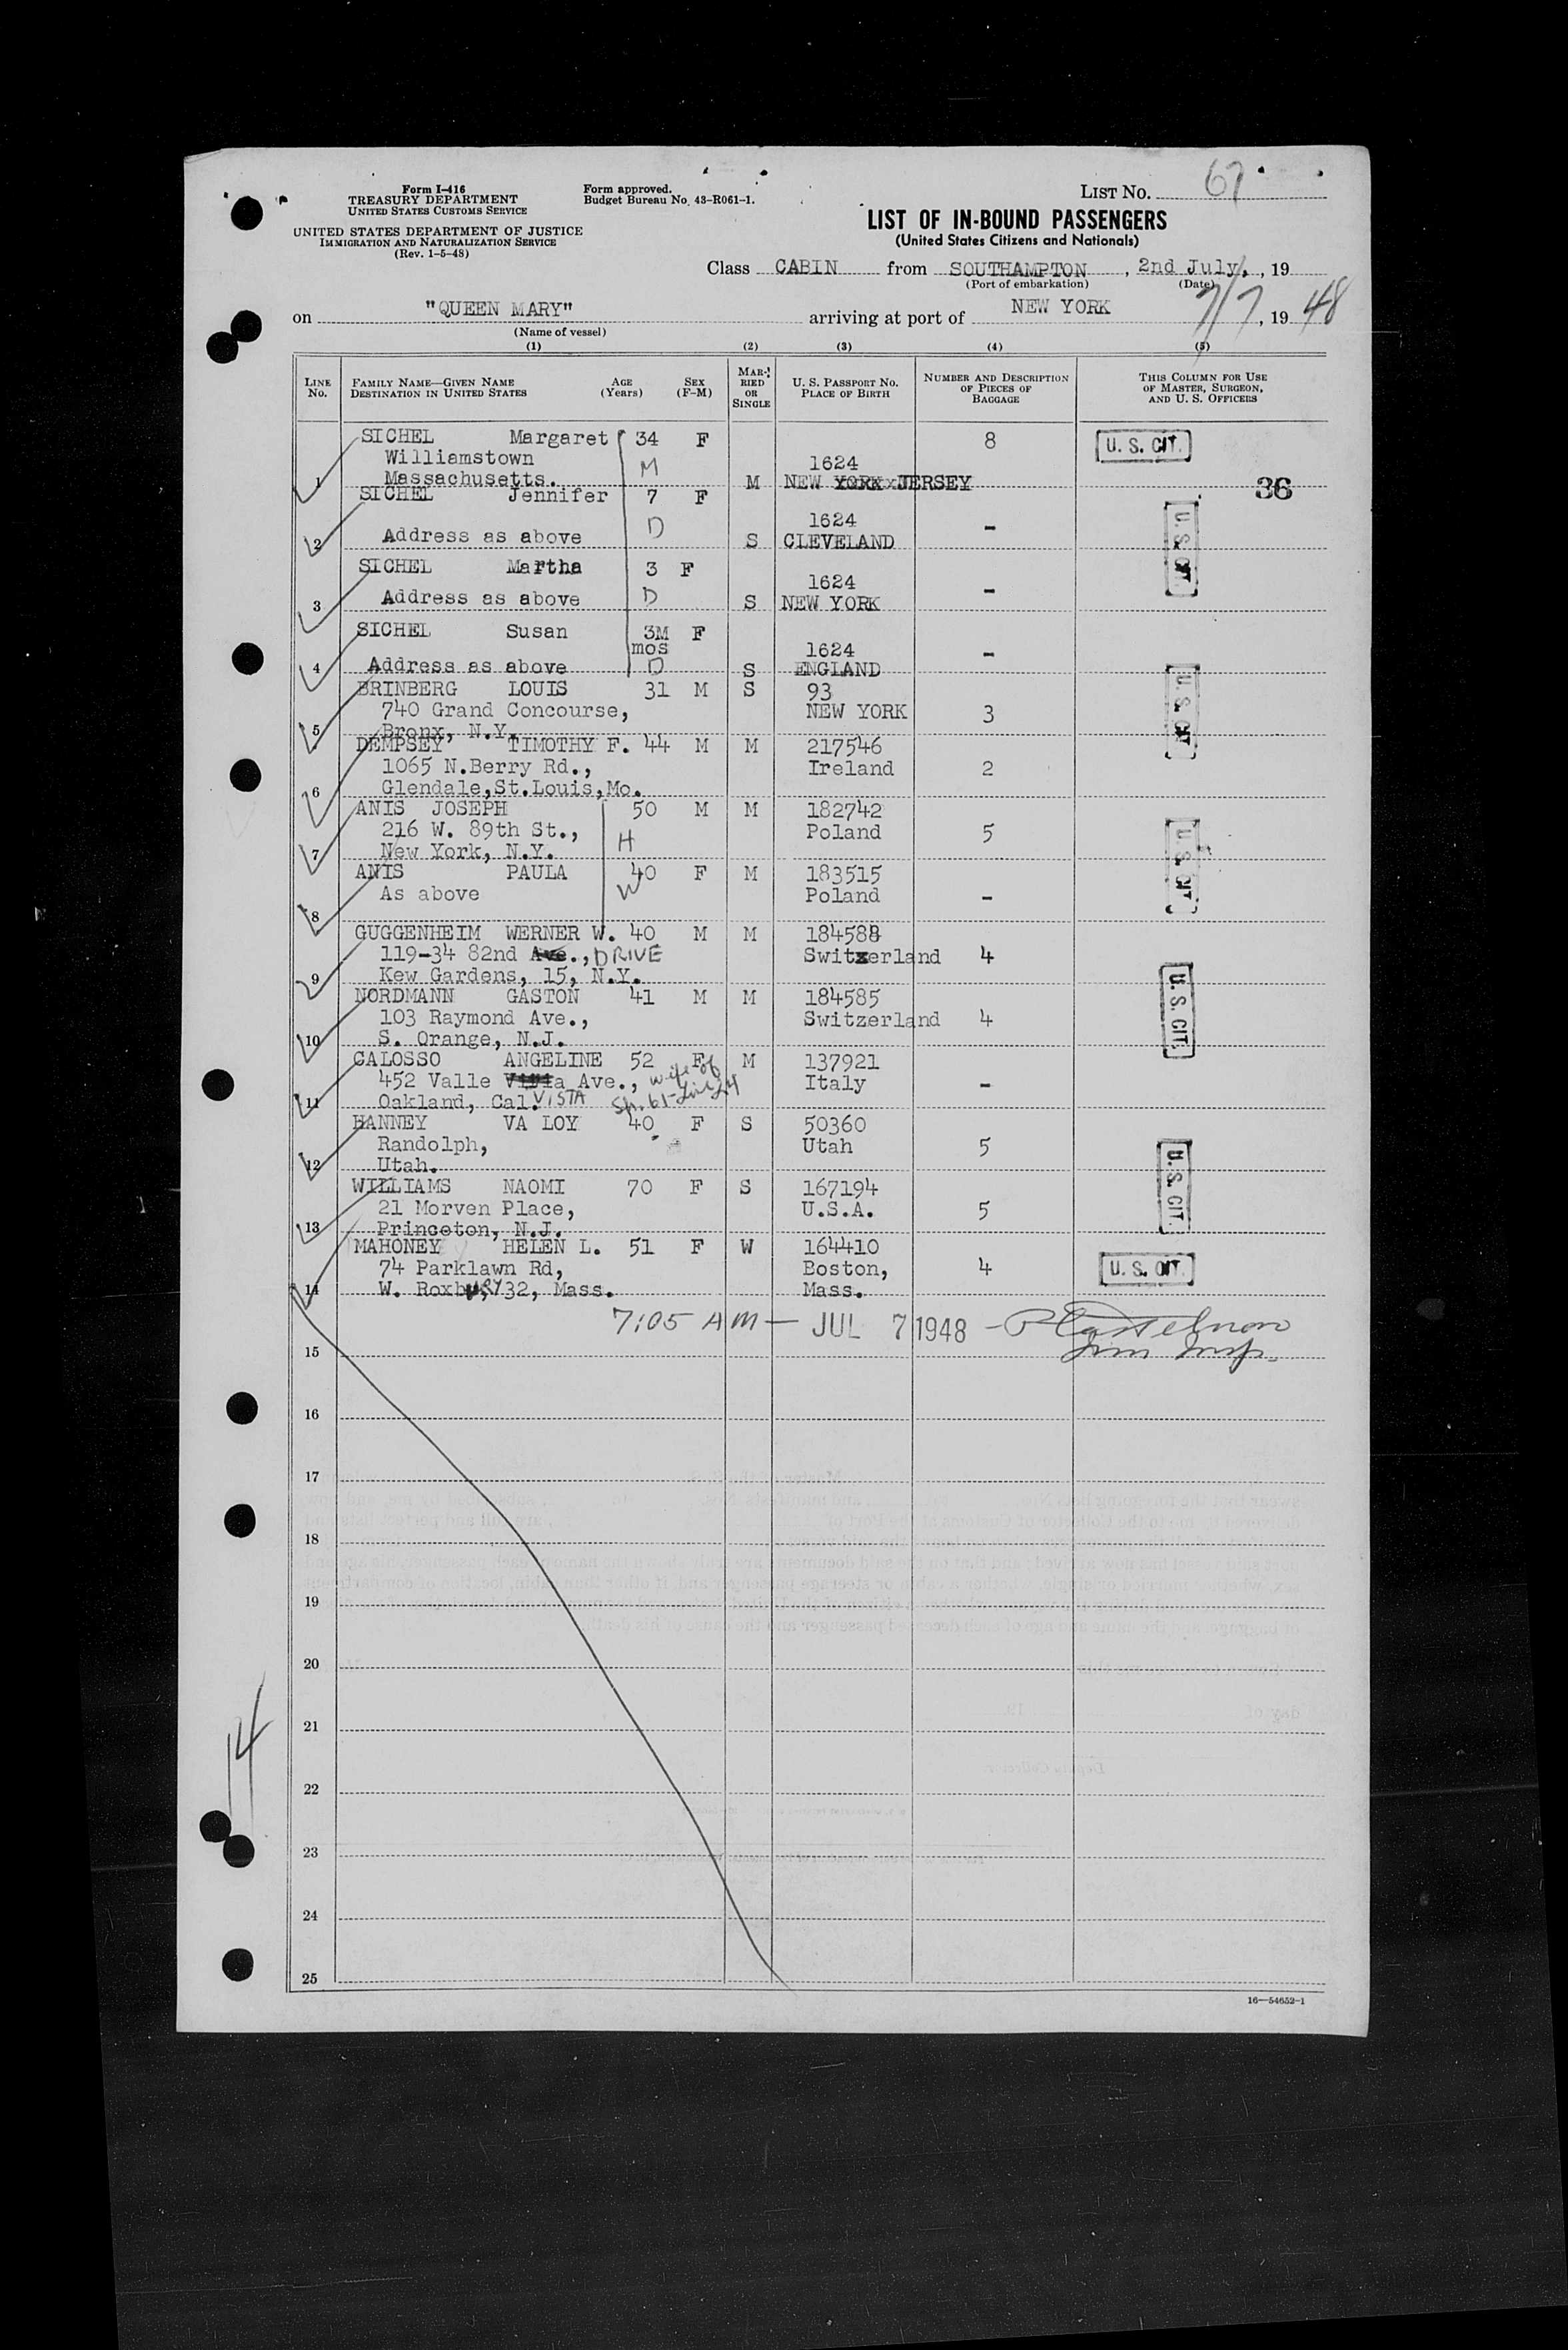 Form I-416
TREASURY DEPARTMENT
UNITED STATES CUSTOMS SERVICE
UNITED STATES DEPARTMENT OF JUSTICE
IMMIGRATION AND NATURALIZATION SERVICE
(Rev. 1-5-48)
Form approved.
Budget Bureau No. 43-R061-1.
LIST NO. 67
LIST OF IN-BOUND PASSENGERS
(United States Citizens and Nationals)
Class CABIN from SOUTHAMPTON, 2nd July, 19
(Port of embarkation) (Date)
on "QUEEN MARY" arriving at port of NEW YORK 7/7, 1948
(Name of vessel)
(1) (2) (3) (4) (5)
LINE NO. FAMILY NAME—GIVEN NAME DESTINATION IN UNITED STATES AGE (Years) SEX (F-M) MARRIED OR SINGLE U. S. PASSPORT NO. PLACE OF BIRTH NUMBER AND DESCRIPTION OF PIECES OF BAGGAGE THIS COLUMN FOR USE OF MASTER, SURGEON, AND U. S. OFFICERS
SICHEL Margaret 34 F 8 U. S. CIT.
Williamstown M 1624
1 Massachusetts. M NEW YORK JERSEY 36
SICHEL Jennifer 7 F
D 1624 - U. S. CIT.
2 Address as above S CLEVELAND
SICHEL Martha 3 F
1624
3 Address as above D S NEW YORK -
SICHEL Susan 3M F
mos 1624 -
4 Address as above D S ENGLAND
BRINBERG LOUIS 31 M S 93
740 Grand Concourse, NEW YORK 3 U. S. CIT.
5 Bronx, N.Y.
DEMPSEY TIMOTHY F. 44 M M 217546
1065 N.Berry Rd., Ireland 2
6 Glendale,St.Louis,Mo.
ANIS JOSEPH 50 M M 182742
216 W. 89th St., H Poland 5 U. S. CIT
7 New York, N.Y.
ANIS PAULA 40 F M 183515
As above W Poland -
8
GUGGENHEIM WERNER W. 40 M M 184588
119-34 82nd Ave., DRIVE Switzerland 4
9 Kew Gardens, 15, N.Y.
NORDMANN GASTON 41 M M 184585 U. S. CIT.
103 Raymond Ave., Switzerland 4
10 S. Orange, N.J.
CALOSSO ANGELINE 52 F M 137921
452 Valle Vista Ave., wife of Italy -
11 Oakland, Cal. VISTA Sh. 61-Line 24
HANNEY VA LOY 40 F S 50360
Randolph, Utah 5
12 Utah.
WILLIAMS NAOMI 70 F S 167194 U. S. CIT.
21 Morven Place, U.S.A. 5
13 Princeton, N.J.
MAHONEY HELEN L. 51 F W 164410
74 Parklawn Rd, Boston, 4 U. S. CIT.
14 W. Roxbury 32, Mass. Mass.
7:05 AM — JUL 7 1948
15 Imm Insp.
16
17
18
19
20
21
22
23
24
25
14
16—54652-1